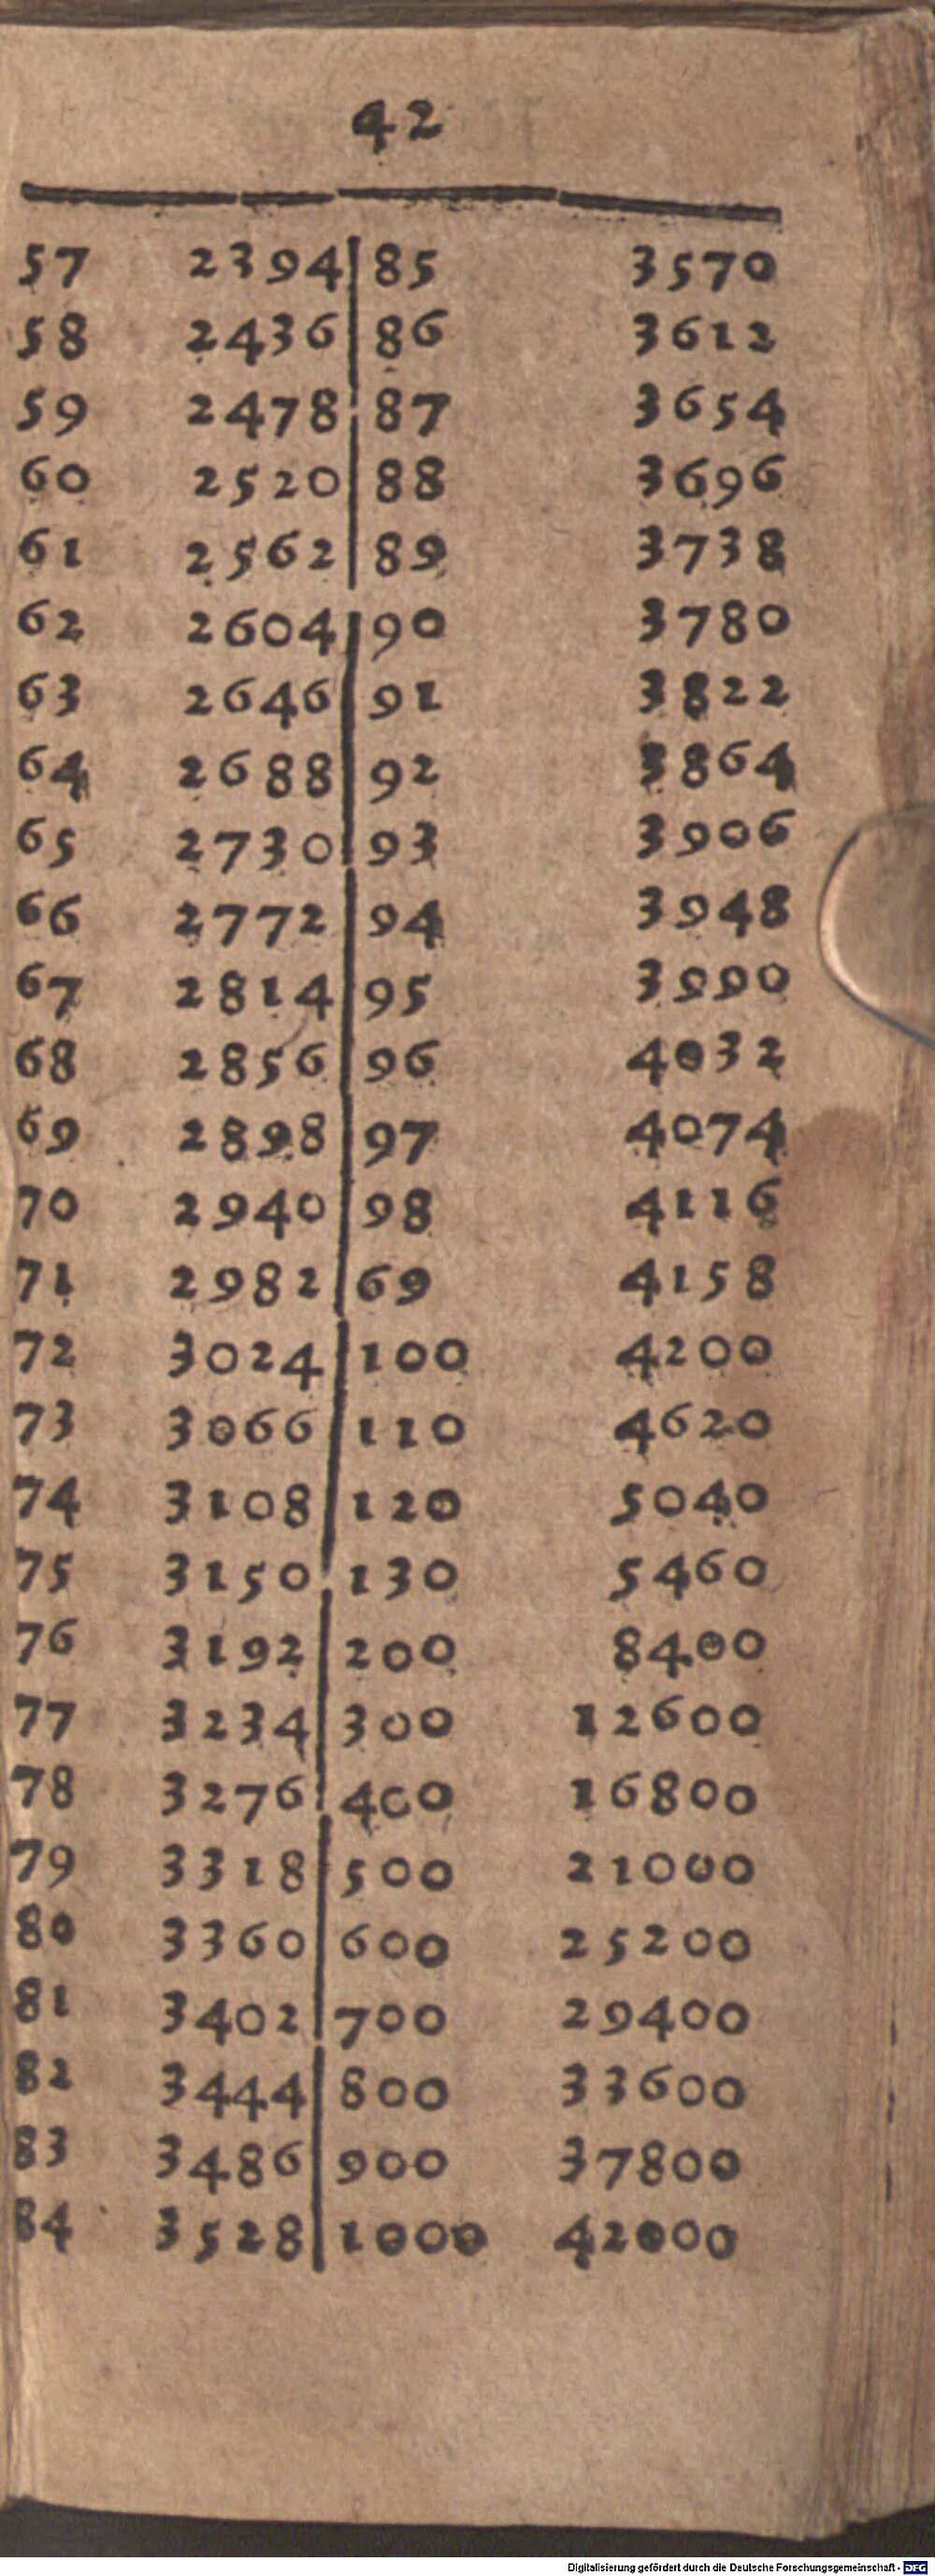 42
57 2394 85 3570
58 2436 86 3612
59 2478 87 3654
60 2520 88 3696
61 2562 89 3738
62 2604 90 3780
63 2646 91 3822
64 2688 92 3864
65 2730 93 3906
66 2772 94 3948
67 2814 95 3990
68 2856 96 4032
69 2898 97 4074
70 2940 98 4116
71 2982 69 4158
72 3024 100 4200
73 3066 110 4620
74 3108 120 5040
75 3150 130 5460
76 3192 200 8400
77 3234 300 12600
78 3276 400 16800
79 3318 500 21000
80 3360 600 25200
81 3402 700 29400
82 3444 800 33600
83 3486 900 37800
84 3528 1000 42000
Digitalisierung gefördert durch die Deutsche Forschungsgemeinschaft - DFG